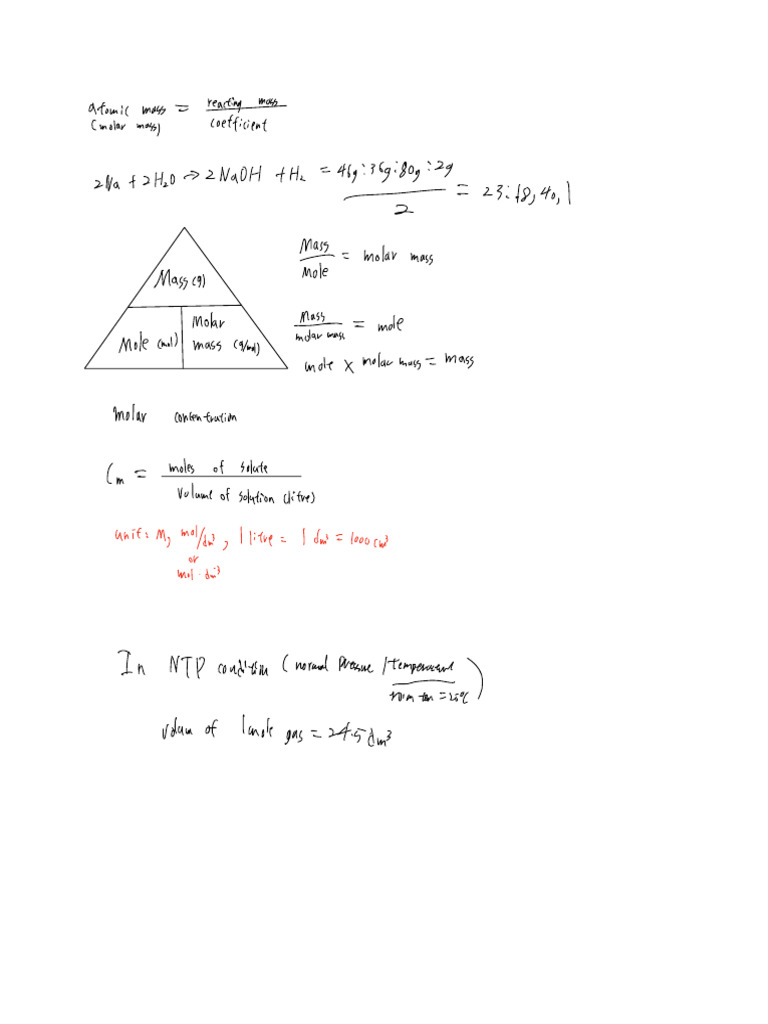 atomic mass = reacting mass / coefficient
(molar mass)
2Na + 2H₂O → 2NaOH + H₂ = 46g:36g:80g:2g / 2 = 23:18,40,1
Mass (g)
Mole (mol)
Molar mass (g/mol)
Mass / Mole = molar mass
Mass / molar mass = mole
mole × molar mass = mass
molar concentration
Cm = moles of solute / volume of solution (litre)
unit: M, mol/dm³, 1 litre = 1 dm³ = 1000 cm³
or
mol·dm⁻³
In NTP condition (normal pressure / temperature)
room tem = 25°C
volum of 1 mole gas = 24.5 dm³